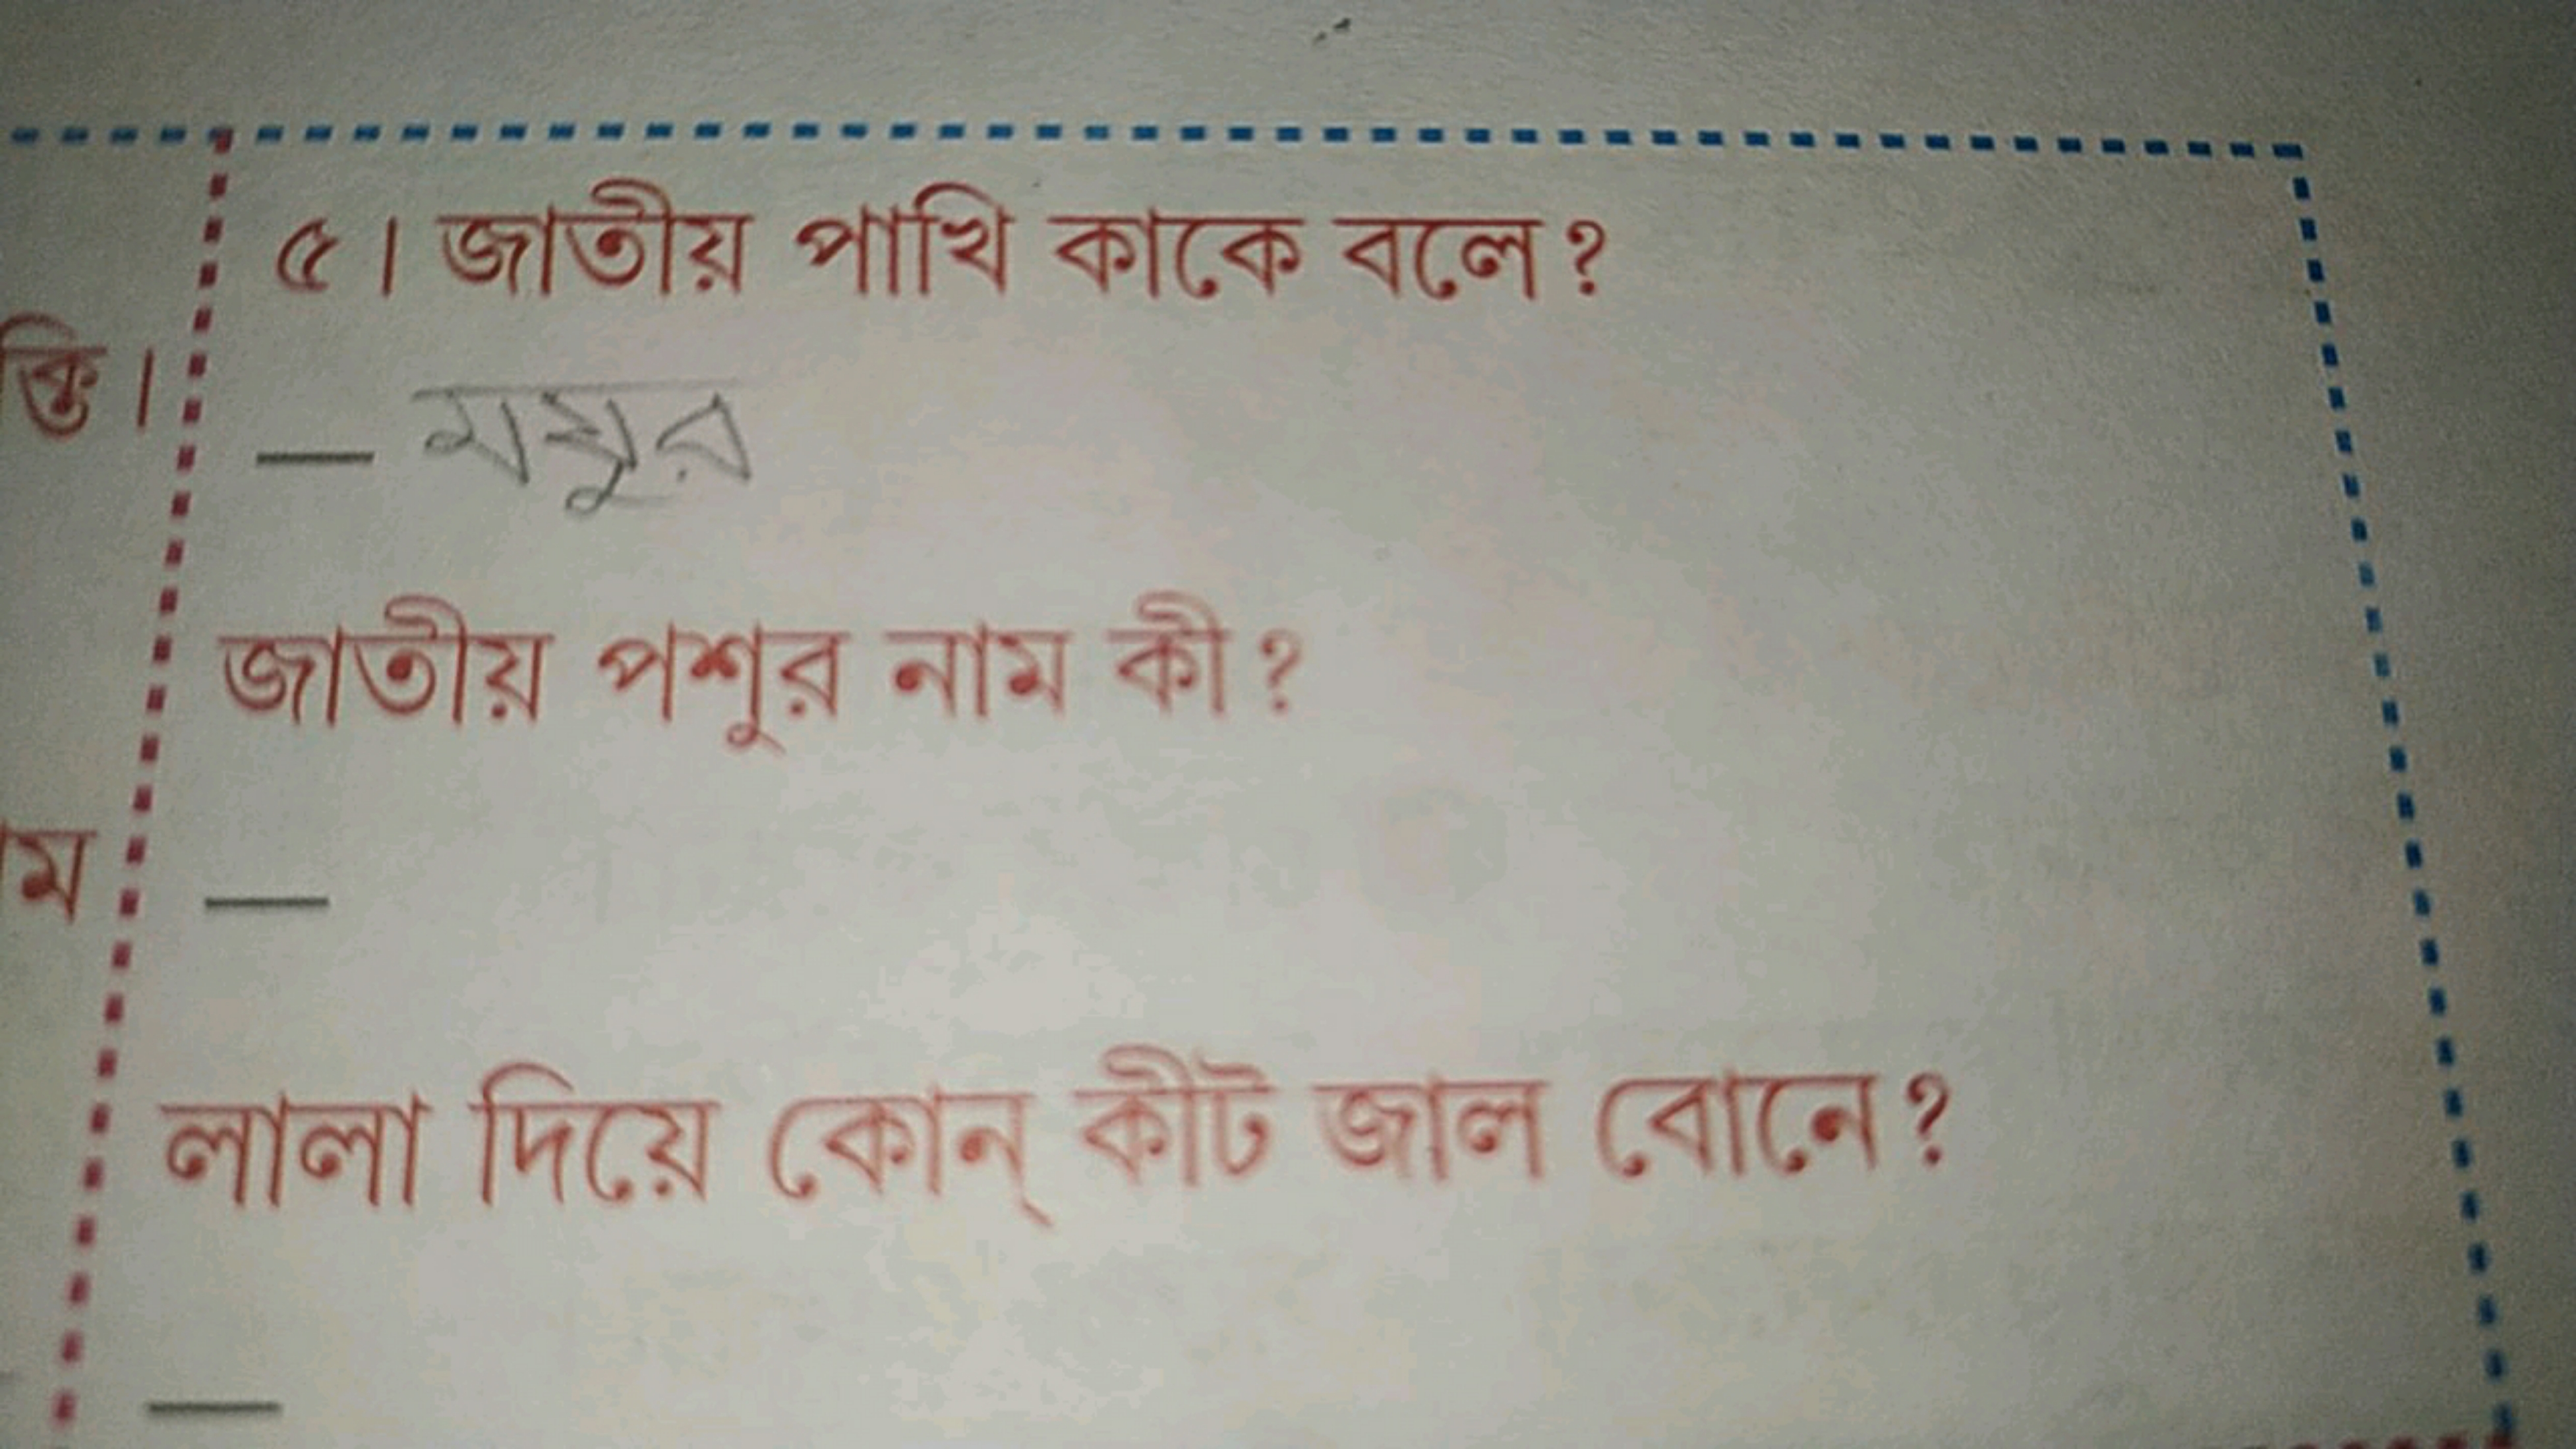 ৫। জাতীয় পাখি কাকে বলে?
ক্তি।
— ময়ুর
জাতীয় পশুর নাম কী?
াম
—
লালা দিয়ে কোন্ কীট জাল বোনে?
—